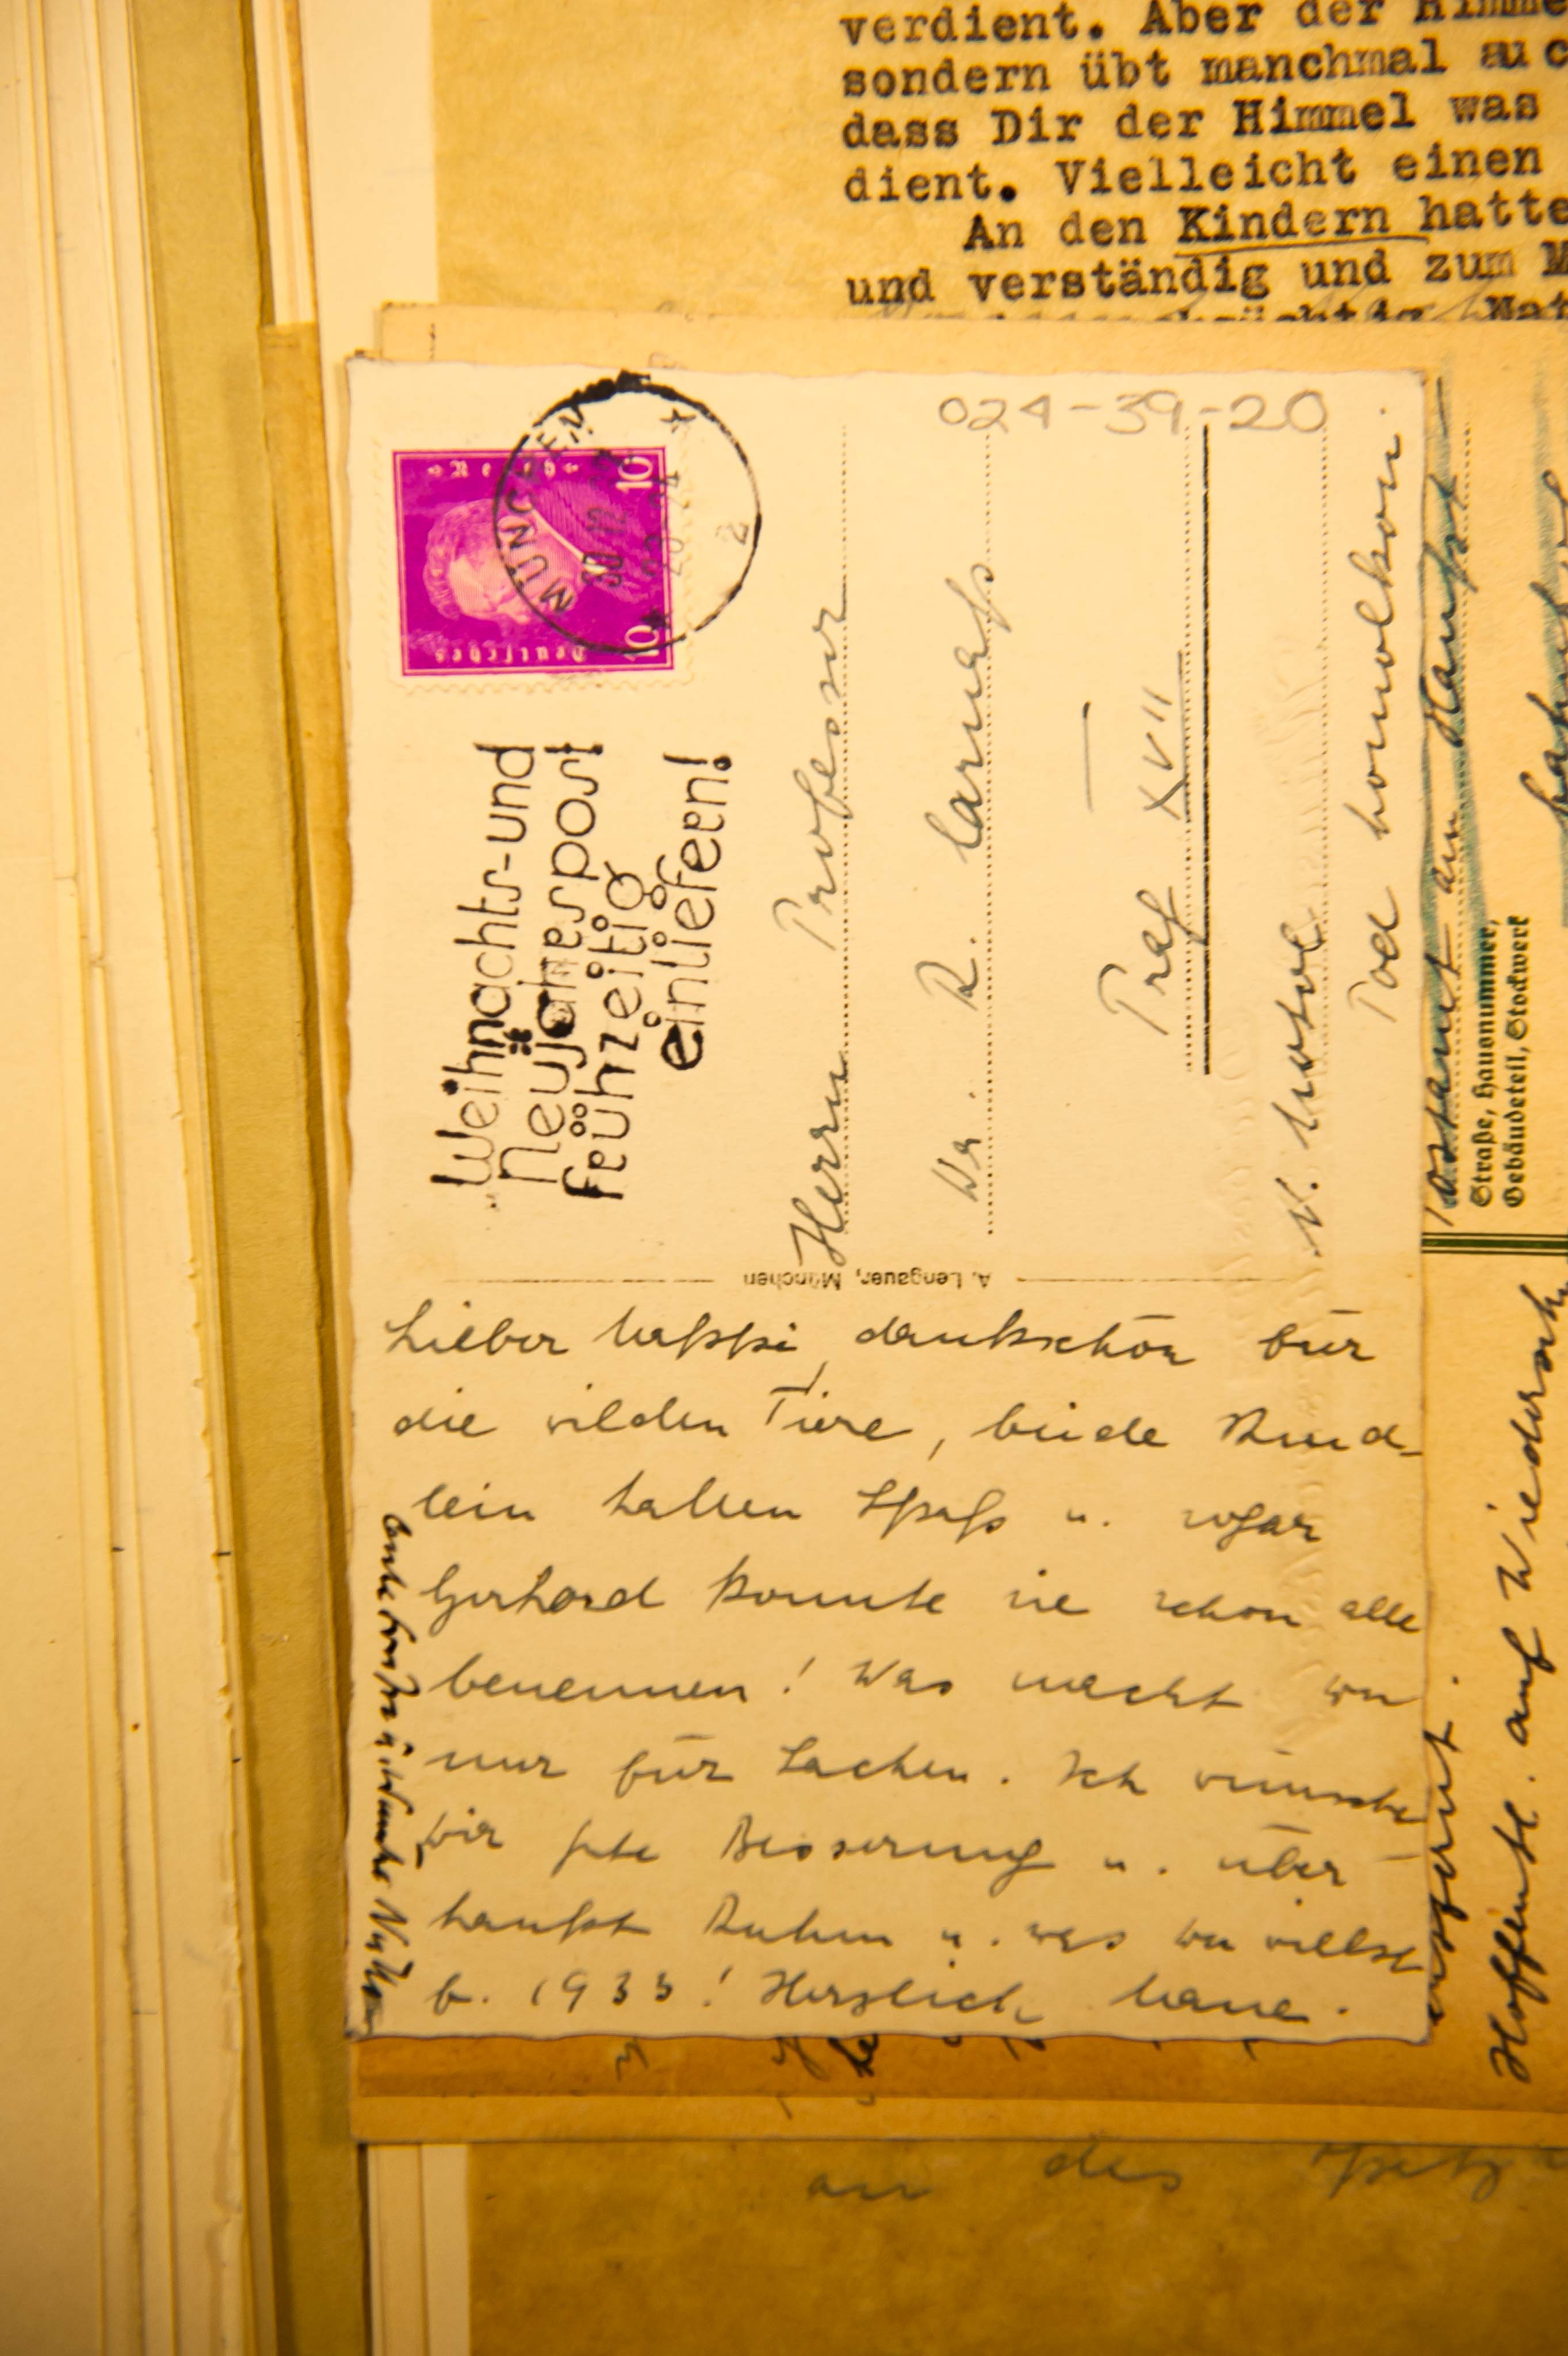 verdient. Aber der Himme
sondern übt manchmal auc
dass Dir der Himmel was
dient. Vielleicht einen
An den Kindern hatte
und verständig und zum M
024-39-20
Deutsches Reich
10 10
MÜNCHEN 2
30.12.
Weihnachts- und
Neujahrspost
frühzeitig
einliefern!
Herrn Professor
Dr. R. Carnap
Prag XVII
N. Motol
Pod homolkou.
A. Lengauer, München
Lieber Carnap, dankschön für
die wilden Tiere, beide Kind-
lein hatten Spass u. sogar
Gerhard konnte sie schon alle
benennen! Was machst Du
nur für Sachen. Ich wünsche
Dir gute Besserung u. über-
haupt Ruhm u. was Du willst
f. 1933! Herzlich Hanne.
Straße, Hausnummer,
Gebäudeteil, Stockwerk
Hoffentl. auf Wiederseh
an des